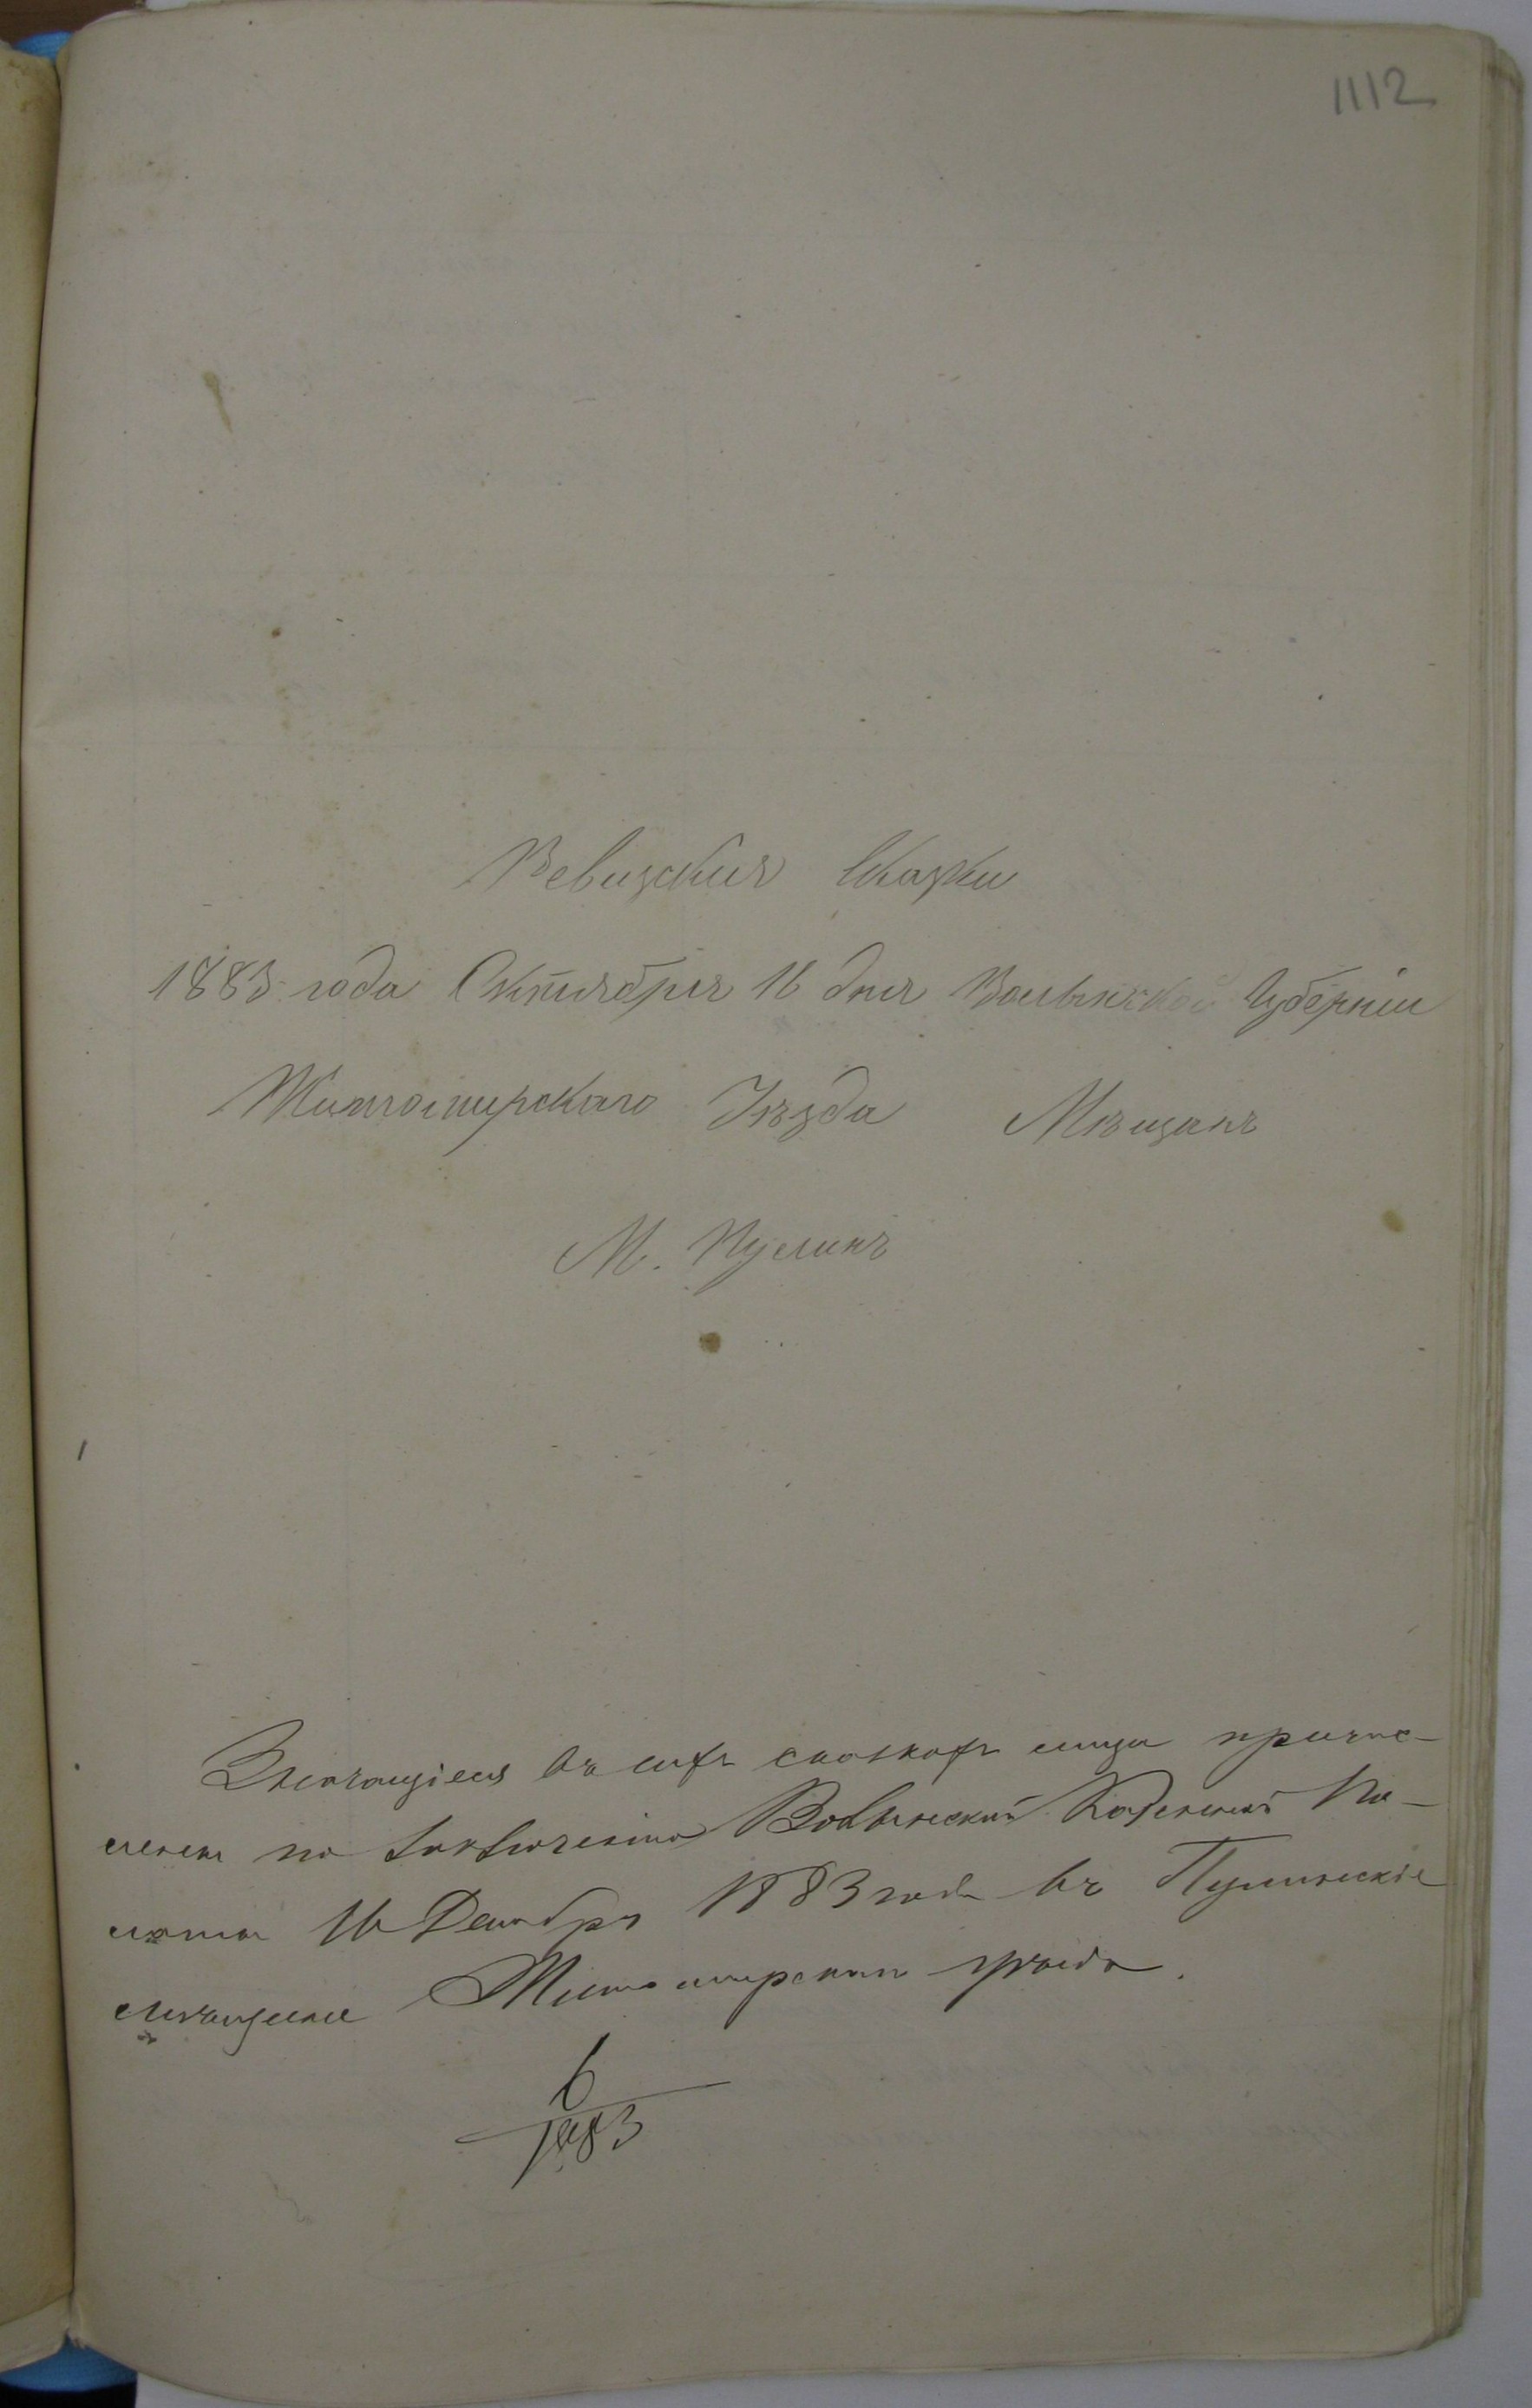 1112
Ревизскія Сказки
1883 года Октября 16 дня Волынской Губерніи
Житомирскаго Уѣзда Мѣщанъ
М. Пулинъ
Значащіеся въ сихъ сказкахъ лица причис-
лены по Волынской Казенной Па-
латы 16 Декабря 1883 года въ Пулинскіе
мѣщане Житомирскаго уѣзда.
6
1883